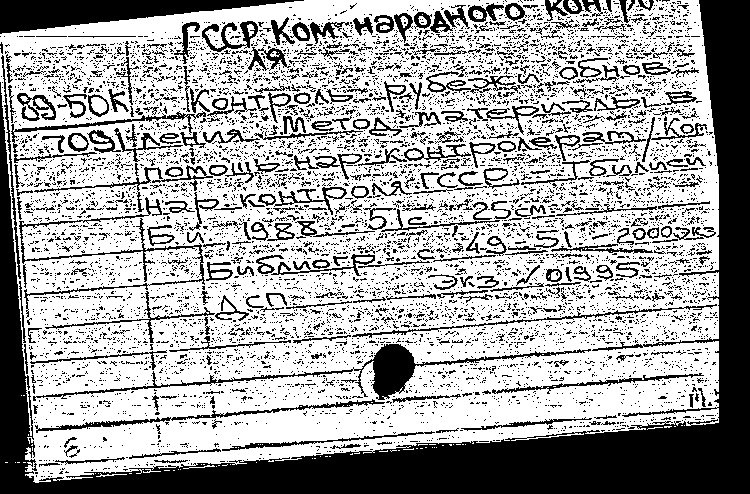 ГССР Ком. народного контро-
ля
89-50К Контроль: рубежи обнов-
7091 ления. Метод. материалы в
помощь нар. контролерам / Ком.
нар. контроля ГССР. – Тбилиси:
Б.и., 1988. – 51с.; 25см.
Библиогр.: с. 49-51. – 2000экз.
ДСП Экз. №01995
6